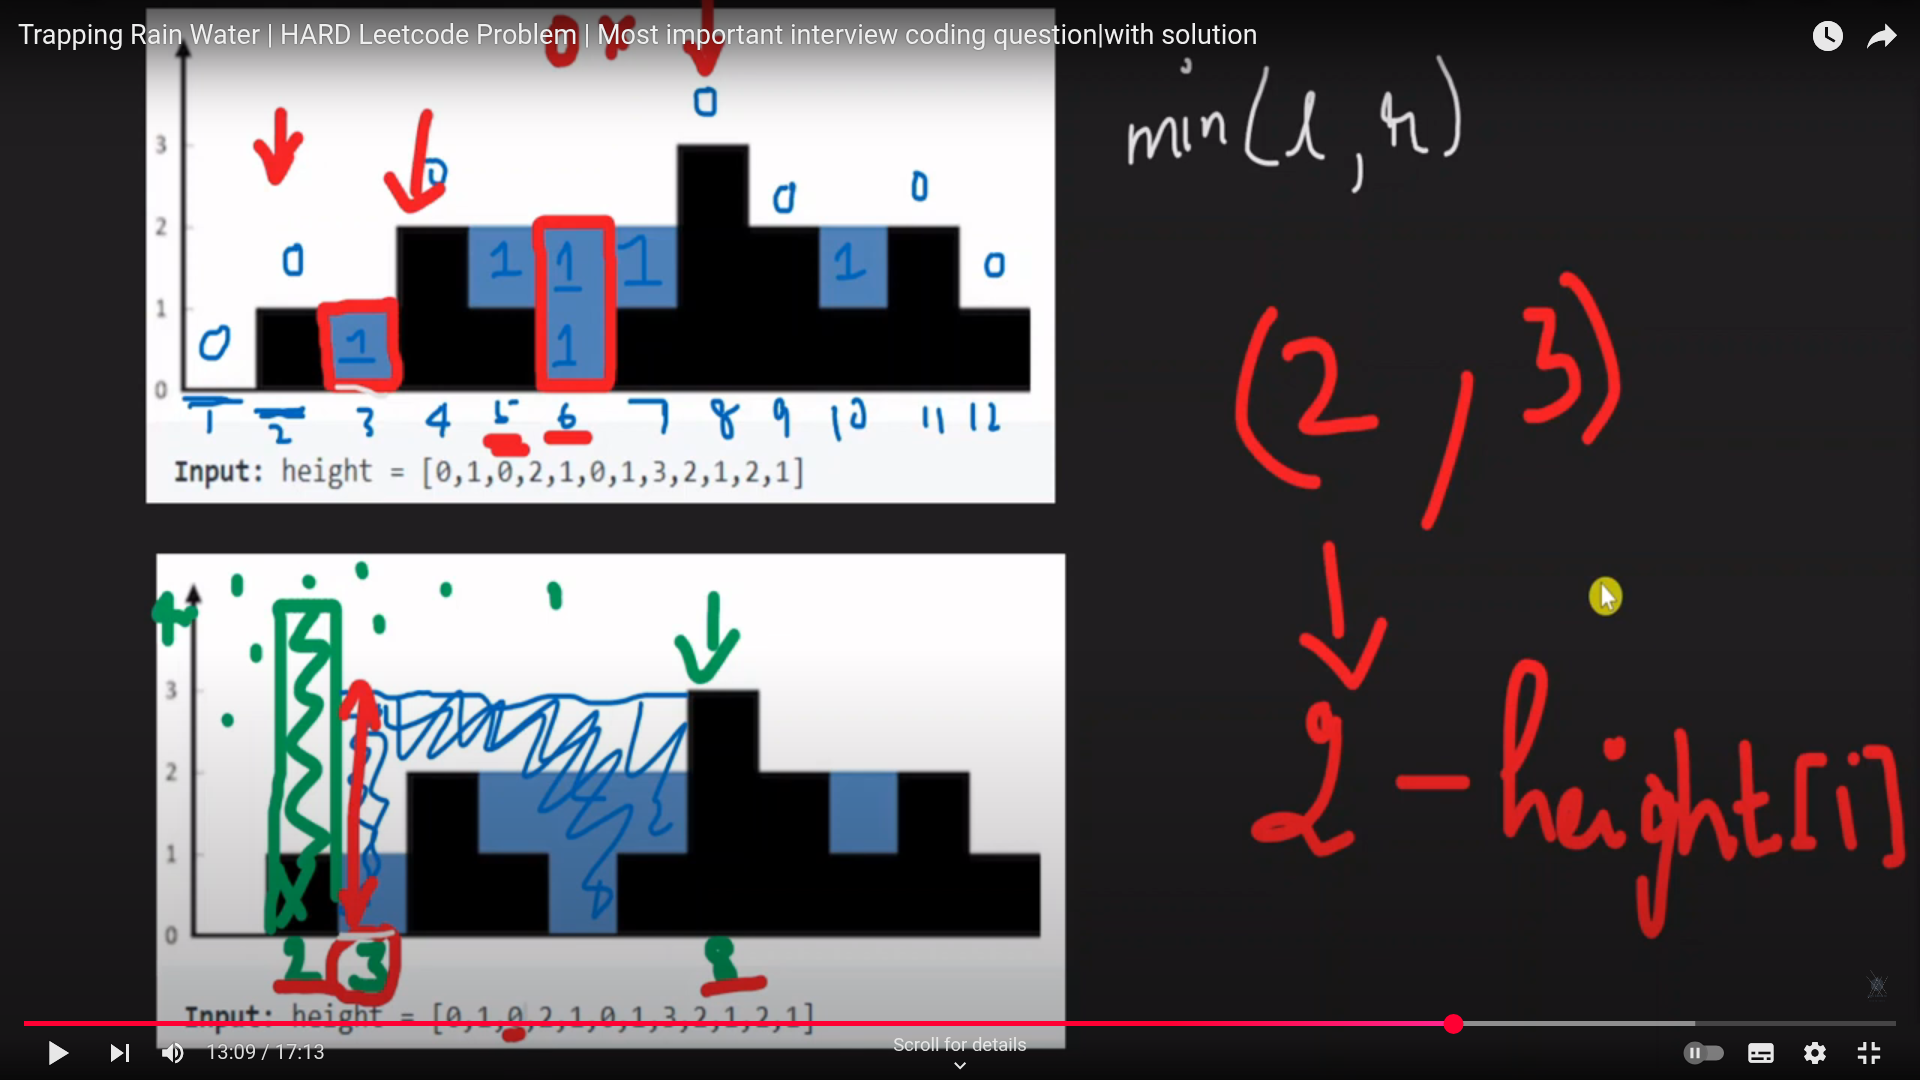 Trapping Rain Water | HARD Leetcode Problem | Most important interview coding question|with solution
min(l,r)
0
3
0
0
0
2
0
1 1 1
1
0
1
0
1
1
0
1 2 3 4 5 6 7 8 9 10 11 12
Input: height = [0,1,0,2,1,0,1,3,2,1,2,1]
(2,3)
2 - height[i]
4
3
2
1
0
2 3 8
Input: height = [0,1,0,2,1,0,1,3,2,1,2,1]
13:09 / 17:13
Scroll for details